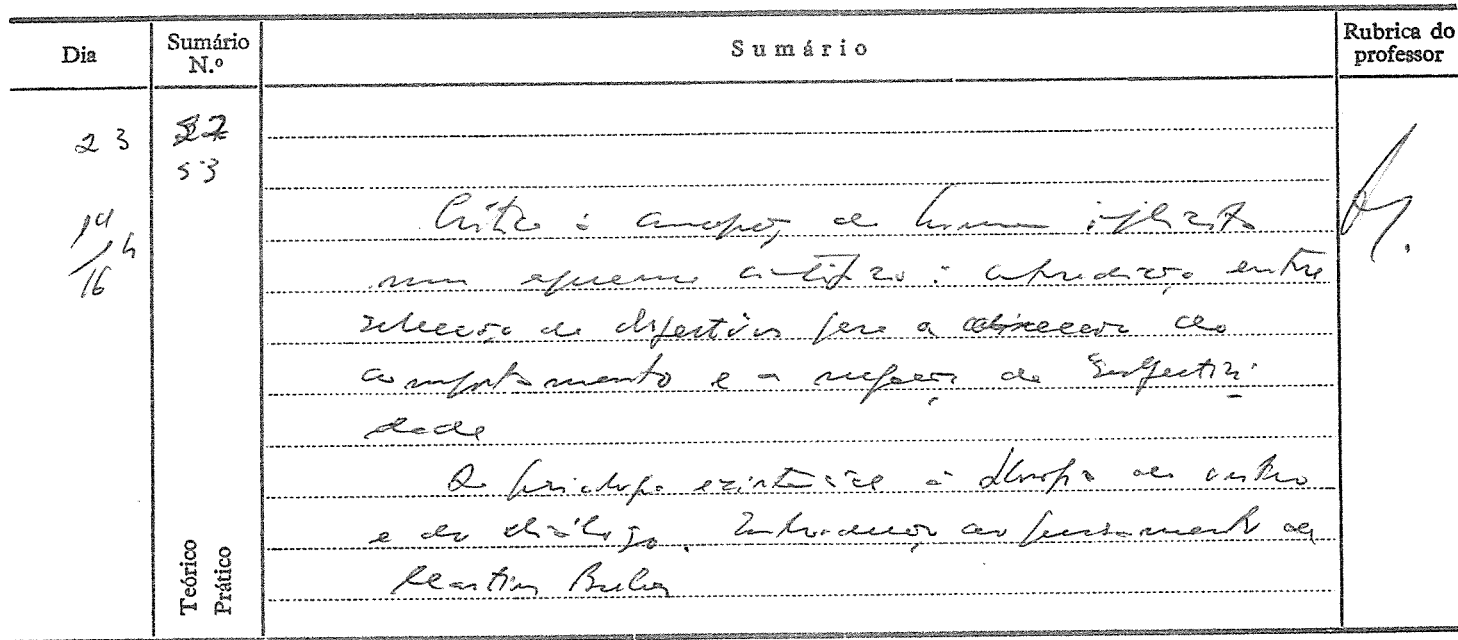 Dia
Sumário N.º
Sumário
Rubrica do professor
23
52
53
14
14
16
Crítica à concepção de homem implícita
num esquema científico: contradição entre
selecção de objectivos para a direcção do
comportamento e a negação da subjectivi-
dade
Da psicologia existencial à filosofia do outro
e do diálogo. Introdução ao pensamento de
Martin Buber
Teórico
Prático